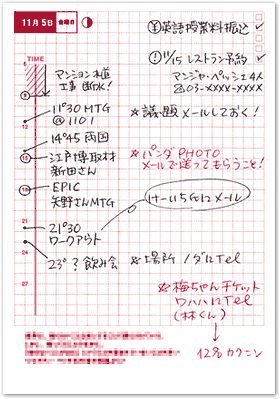 11月5日 金曜日
¥英語授業料振込
! 11/15 レストラン予約
マンジャ・ペッシェ 4人
☎03-XXXX-XXXX
TIME
マンション
工事 断水!
11°30 MTG
@1101
※議題メールしておく!
14°45 両国
江戸博取材
新田さん
※パンダPHOTO
メールで送ってもらうこと!
EPIC
矢野さんMTG
21°30
ワークアウト
23°? 飲み会
※場所 /ダにTel
※梅ちゃんチケット
ワハハにTel
(林くん)
12%カクニン